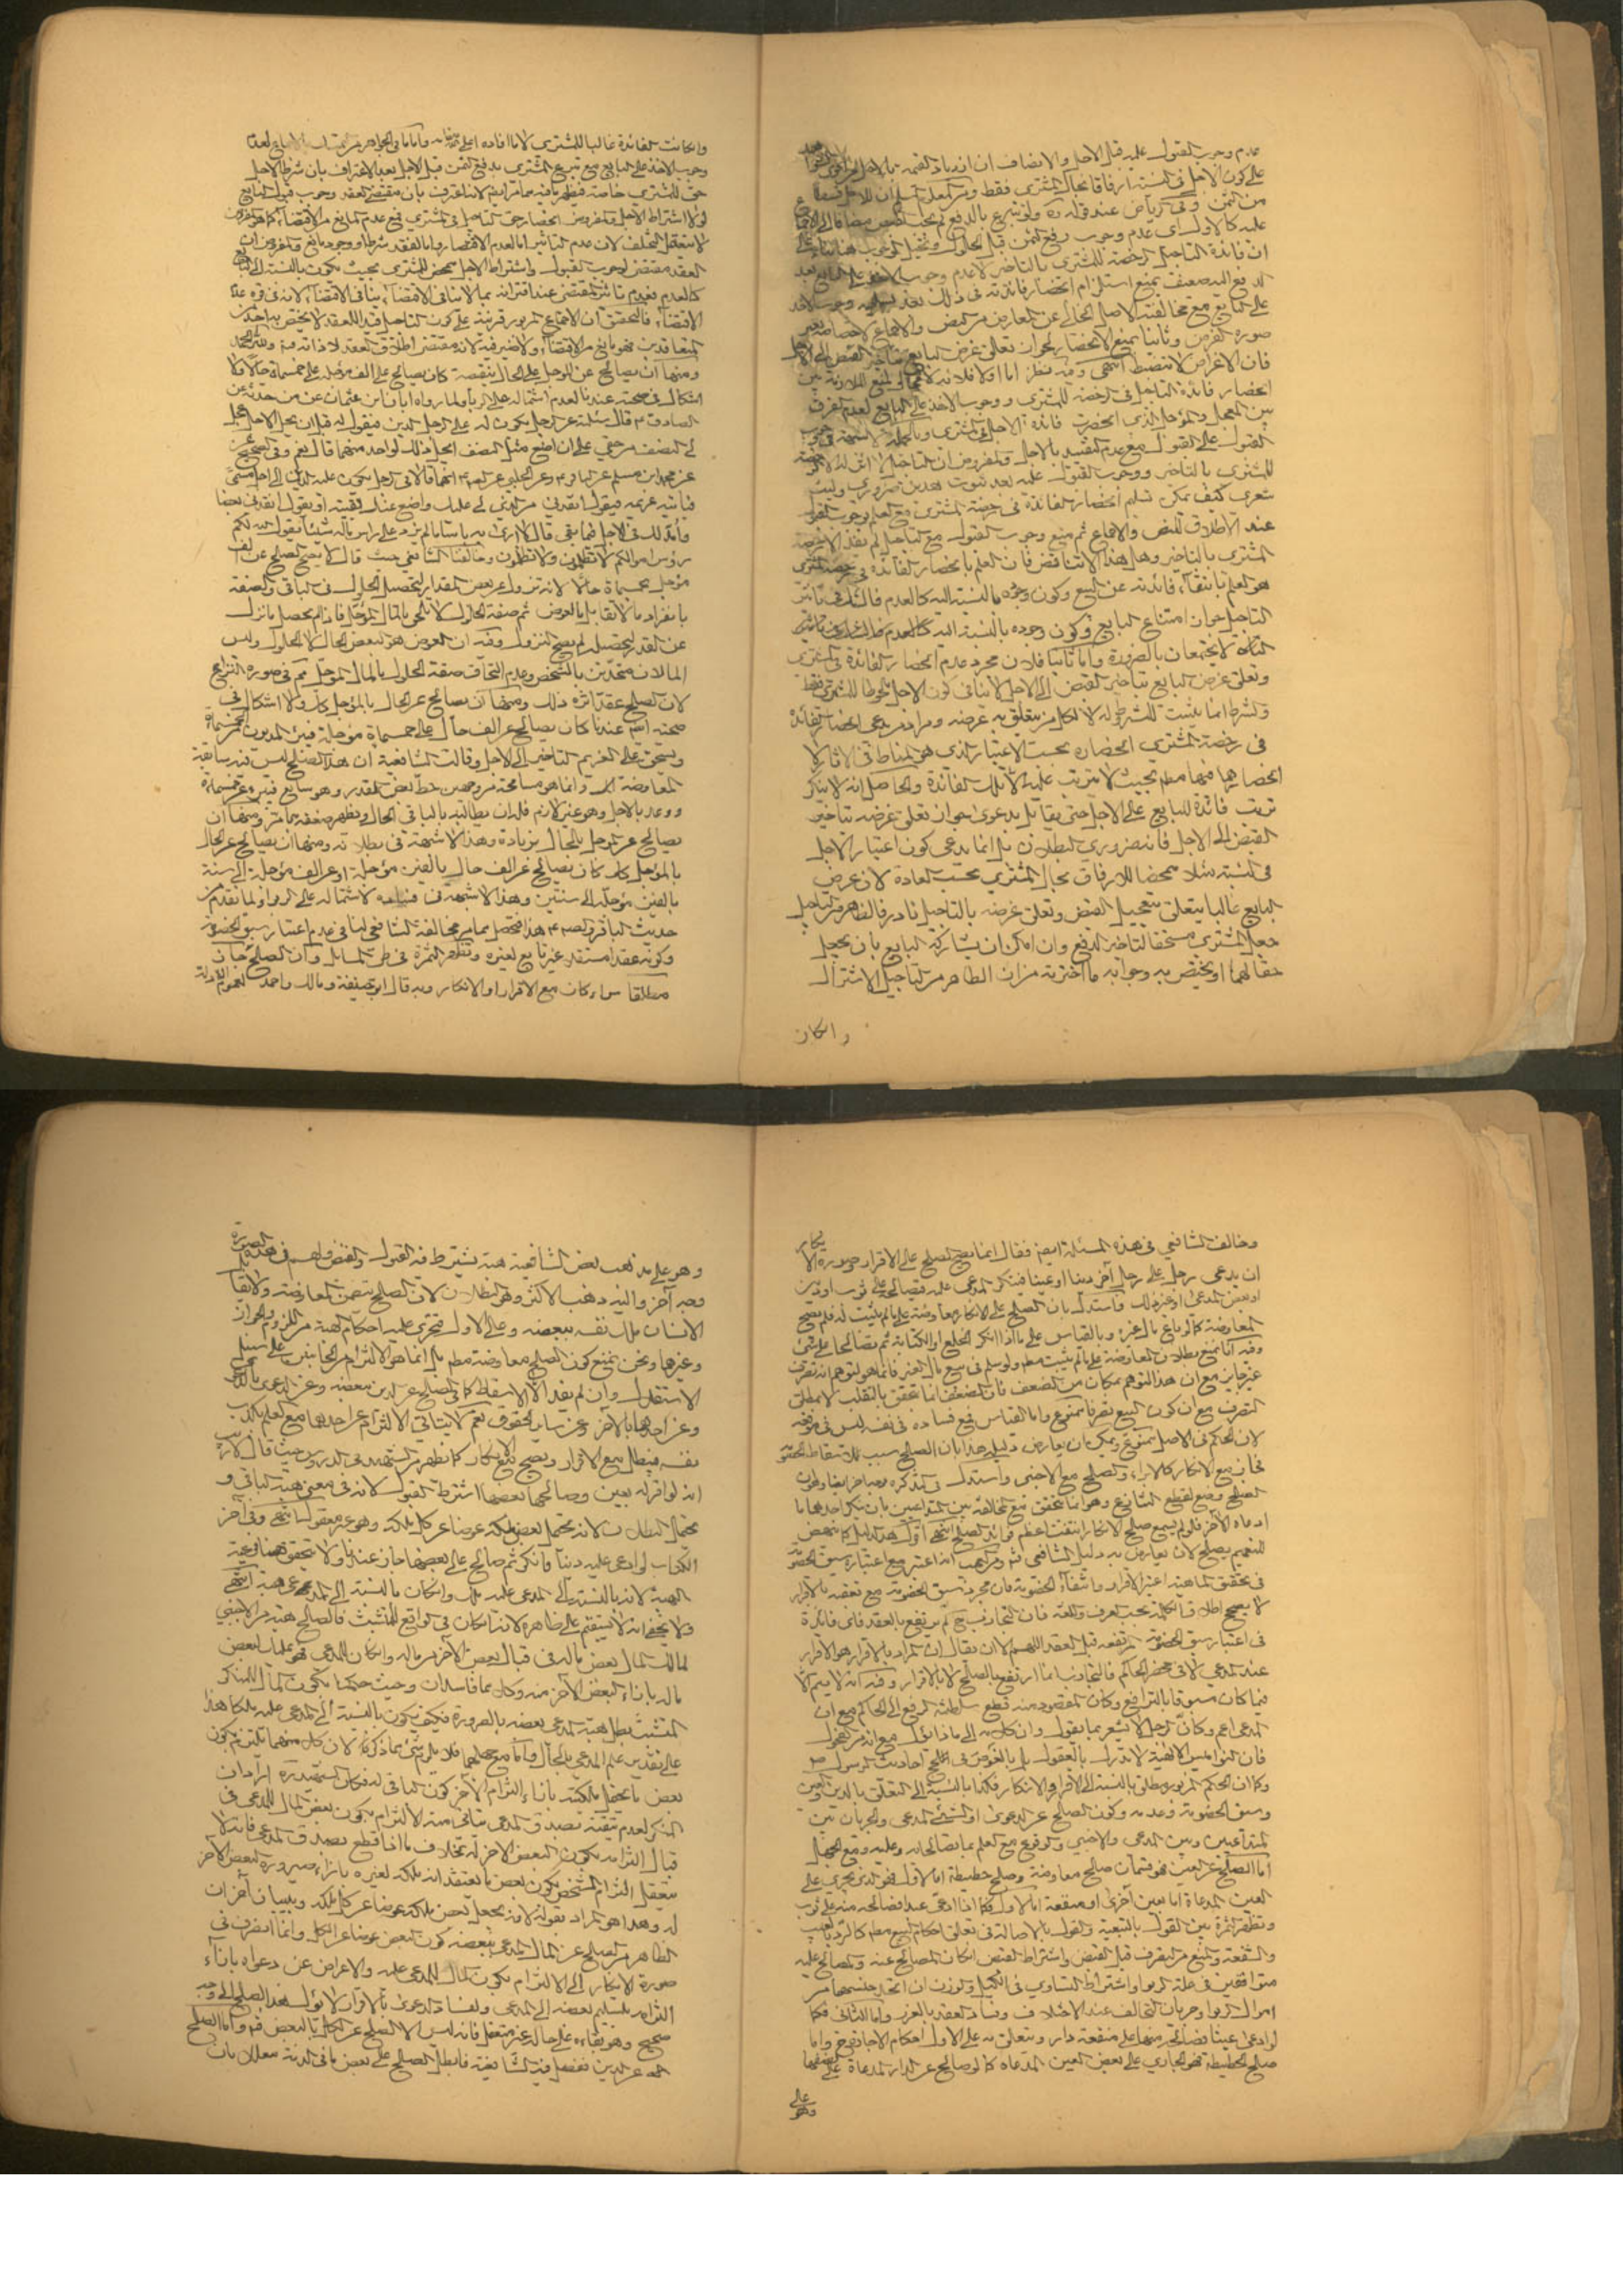 عدم وجوب القبول عليه قبل الاجل والانصاف ان ازدياد القيمة
على كون الاجل في النسية ارفاقا بحال المشتري فقط
من الثمن وفي الرياض عند قوله ره ولو تبرع بالدفع لم يجب
عليه كالاول اي عدم وجوب دفع الثمن قبل الحلول
ان فائدة التاجيل الرخصة للمشتري بالتاخير لا عدم وجوب الاخذ على البايع بعد
الدفع اليه ضعيف بمنع استلزام انحصار فائدته في ذلك
على البايع مع مخالفته الاصل الخالي عن المعارض من النص والاجماع
صورة الفرض وثانيا بمنع الانحصار لجواز تعلق غرض البايع بتاخير القبض الى الاجل
فان الاغراض لا تنضبط انتهى وفيه نظر اما اولا فلانه لا مجال لمنع الملازمة بين
انحصار فائدة التاجيل في الرخصة للمشتري ووجوب الاخذ على البايع لعدم الفرق
بين المعجل والمؤجل الذي انحصرت فائدة الاجل في المشتري وبالجملة لا شبهة في وجوب
القبول على القبول مع عدم التقييد بالاجل والمفروض ان التاجيل لا اثر له الا الرخصة
للمشتري بالتاخير ووجوب القبول عليه بعد ثبوت هذين ضروري وليت
شعري كيف يمكن تسليم انحصار الفائدة في رخصة المشتري مع العلم بوجوب القبول
عند الاطلاق للنص والاجماع ثم منع وجوب القبول مع التاجيل لم يفد الا رخصة
المشتري بالتاخير وهل هذا الا تناقض فان العلم بانحصار الفائدة في رخصة المشتري
هو العلم بانتفاء فائدته عن البيع وكون وجوده بالنسبة اليه كالعدم فالشك في تاثير
التاجيل جواز امتناع البايع وكون وجوده بالنسبة اليه كالعدم
لا يجتمعان بالضرورة واما ثانيا فلان مجرد عدم انحصار الفائدة في المشتري
وتعلق غرض البايع بتاخير القبض الى الاجل لا ينافي كون الاجل ملحوظا للمشتري فقط
والشرط انما يثبت للمشروط له لا لكل من يتعلق به غرضه ومراد من يدعي انحصار الفائدة
في رخصة المشتري انحصاره بحسب الاعتبار الذي هو المناط في الاثار لا
انحصارها فيها مطم بحيث لا يترتب عليه الا تلك الفائدة والحاصل انه لا ينكر
ترتب فائدة للبايع على الاجل حتى يقابل بدعوى جواز تعلق غرضه بتاخير
القبض الى الاجل فانه ضروري البطلان بل انما يدعي كون اعتبار الاجل
في النسية مثلا محضا للارفاق بحال المشتري بحسب العادة لان غرض
البايع غالبا يتعلق بتعجيل القبض وتعلق غرضه بالتاجيل نادر فالظاهر من التاجيل
جعل المشتري مستحقا لتاخير الدفع وان امكن ان يشاركه البايع بان يجعل
حقا لهما او يختص به وجوابه ما اخترته من ان الظاهر من التاجيل الاشتراك
وان كان
وان كانت الفائدة غالبا للمشتري لا ما افاده اعلى مقامه واما ما في الجواهر
وجوب الاخذ على البايع مع تبرع المشتري بدفع الثمن قبل الاجل بعد الاعتراف بان شرط الاجل
حق للمشتري خاصة فيظهر ما فيه مما مر ايضا لانا عرفت بان مقتضى العقد وجوب قبول البايع
لولا اشتراط الاجل والمفروض انحصار حق التاجيل في المشتري فمع عدم المانع من الاقتضاء كما هو المفروض
لا يتعقل التخلف لان عدم التاثير اما لعدم الاقتضاء واما لفقد شرط او وجود مانع والمفروض ان
العقد مقتض لوجوب القبول واشتراط الاجل محض للمشتري بحيث يكون بالنسبة الى البايع
كالعدم فعدم تاثير المقتضي عند اقترانه بما لا ينافي الاقتضاء ينافي الاقتضاء لانه في قوة عدم
الاقتضاء فالتحقيق ان الاجماع المزبور قرينة على كون التاجيل قيدا للعقد لا يختص به احد
المتعاقدين فهو مانع من الاقتضاء ولا ضير فيه لانه مقتضى اطلاق العقد لا ذاته
ومنها ان يصالح عن المؤجل على الحال بنقيصة كان يصالح على الف مؤجلة على خمسماة حالا ولا
اشكال في صحته عندنا لعدم اشتماله على الربا ولما رواه ابان ابن عثمان عن من حدثه عن
الصادق ع قال سئلته عن الرجل يكون له على الرجل الدين فيقول له قبل ان يحل الاجل عجل
لي النصف من حقي على ان اضع عنك النصف ايحل ذلك لواحد منهما قال نعم وفي الصحيح
عن محمد ابن مسلم عن الباقر ع وعن الحلبي عن الصادق ع انهما قالا في الرجل يكون عليه الدين الى اجل مسمى
فياتيه غريمه فيقول انقدني من الذي لي عليك واضع عنك بقيته او يقول انقدني بعضا
وامد لك في الاجل فيما بقي قال لا ارى به باسا ما لم يزد على راس ماله شيئا يقول الله لكم
رؤس اموالكم لا تظلمون ولا تظلمون وخالفنا الشافعي حيث قال لا يصح الصلح عن الف
مؤجل بخمسماة حالا لانه نزول عن بعض المقدار لتحصيل الحلول في الباقي والصفة
بانفرادها لا تقابل بالعوض ثم صفة الحلول لا تلحق بالمال المؤجل فاذا لم يحصل ما نزل
عن القدر لتحصيله لم يصح النزول وفيه ان العوض هو البعض الحال لا الحلول وليس
المالان متحدين بالشخص وعدم التحاق صفة الحلول بالمال المؤجل مم في صورة النزاع
لان الصلح عقد اثره ذلك ومنها ان يصالح عن الحال بالمؤجل كذلك ولا اشكال في
صحته ايضا عندنا كان يصالح عن الف حال على خمسماة مؤجلة فيبرء المديون من خمسماة
ويستحق على الغريم التاخير الى الاجل وقالت الشافعية ان هذا الصلح ليس فيه شائبة
المعاوضة وانما هو مسامحة من وجهين حط بعض القدر وهو سايغ فيبرء عن خمسماة
ووعد بالاجل وهو غير لازم فله ان يطالبه بالباقي الحال ويظهر ضعفه مما مر ومنها ان
يصالح عن المؤجل بالحال بزيادة وهذا لا شبهة في بطلانه ومنها ان يصالح عن الحال
بالمؤجل كذلك كان يصالح عن الف حال بالفين مؤجلة او عن الف مؤجلة الى سنة
بالفين مؤجلة الى سنتين وهذا لا شبهة في فساده لاشتماله على الربوا ولما تقدم من
حديث الباقر والصادق ع هذا فتحصل مما مر مخالفة الشافعي لنا في عدم اعتبار سبق الخصومة
وكونه عقدا مستقلا غير تابع لغيره وتظهر الثمرة في طي المسائل وان الصلح جائز
مطلقا سواء كان مع الاقرار او الانكار وبه قال ابو حنيفة ومالك واحمد لعموم الادلة
وخالف الشافعي في هذه المسئلة ايضا فقال انما يصح الصلح على الاقرار وصورة الانكار
ان يدعي رجل على رجل آخر دينا او عينا فينكر المدعى عليه فيصالح على ثوب او دين
او بعض المدعى او غير ذلك واستدل بان الصلح على الانكار معاوضة على ما لم يثبت له فلم يصح
المعاوضة كما لو باع مال غيره وبالقياس على ما اذا انكر الخلع او الكتابة ثم تصالحا على شئ
وفيه انا نمنع بطلان المعاوضة على ما لم يثبت مطم ولو سلم في بيع مال الغير فانما هو لتوهم انه تصرف
غير جايز مع ان هذا التوهم بمكان من الضعف فان الضعف انما يتحقق بالتقليب لا بمطلق
التصرف مع ان كون البيع تصرفا ممنوع واما القياس فمع فساده في نفسه ليس في موقعه
لان الحكم في الاصل ممنوع ويمكن ان يعارض دليله هذا بان الصلح سبب لاسقاط الحقوق
فجاز مع الانكار كالابراء والصلح مع الاجنبي واستدل في التذكرة
الصلح وضع لقطع التنازع وهو انما يتحقق مع المخالفة بين المتداعيين بان ينكر احدهما ما
ادعاه الاخر فلو لم يسمع صلح الانكار انتفت اعظم فوائد الصلح انتهى اقول هذا الدليل كما ينهض
للتعميم يصلح لان يعارض به دليل الشافعي ثم من العجب انه اعتبر مع اعتباره سبق الخصومة
في تحقق الماهية اعتبر الاقرار وانتفاء الخصومة فان مجرد سبق الخصومة مع تعقبه بالاقرار
لا يصحح اطلاق الكلمة بحسب العرف واللغة فان التجاذب ح لم يرتفع بالعقد فاي فائدة
في اعتبار سبق الخصومة المرتفعة قبل العقد اللهم الا ان يقال ان المراد بالاقرار هو الاقرار
عند المدعي لا في محضر الحاكم فالتجاذب انما ارتفع بالصلح لا بالاقرار وفيه انه لا يتم الا
فيما كان مسبوقا بالترافع وكان المقصود منه قطع سلطنة الرفع الى الحاكم مع ان
المدعى اعم وكان الرجل لا يشعر بما يقول وان كلامه الى ماذا يئول مع انه من الفحول
فان النواميس الالهية لا تدرك بالعقول بل بالغوص في لجج احاديث الرسول ص
وكما ان الحكم المزبور مطلق بالنسبة الى الاقرار والانكار فكذا بالنسبة الى التعلق بالدين والعين
وسبق الخصومة وعدمه وكون الصلح عن الدعوى او الشئ المدعى والجريان بين
المتداعيين وبين المدعي والاجنبي والوقوع مع العلم بما يصالحانه وعليه ومع الجهل
اما الصلح عن العين فهو قسمان صلح معاوضة وصلح حطيطة اما الاول فهو الذي يجري على
العين المدعاة اما بعين آخرى او منفعة اما الاول فكما اذا ادعى عبدا فصالحه منه على ثوب
وتظهر الثمرة بين القول بالتبعية والقول بالاصالة في تعلق احكام البيع مطم كالرد بالعيب
والشفعة والمنع من التصرف قبل القبض واشتراط القبض ان كان المصالح عنه والمصالح عليه
متوافقين في علة الربوا واشتراط التساوي في الكيل والوزن ان اتحد جنسهما من
اموال الربوا وجريان التحالف عند الاختلاف وفساد العقد بالغرر واما الثاني فكما
لو ادعى عينا فصالحه منها على منفعة دار ويتعلق به على الاول احكام الاجارة ح واما
صلح الحطيطة فهو الجاري على بعض العين المدعاة كما لو صالح عن الدار المدعاة على نصفها
وهو على
وهو على مذهب بعض الشافعية هبة يشترط فيه القبول والقبض ولهم في هذه الصورة
وجه آخر واليه ذهب الاكثر وهو البطلان لان الصلح يتضمن المعاوضة ولا يقابل
الانسان ملك نفسه ببعضه وعلى الاول فتجري عليه احكام الهبة من اللزوم والجواز
وغيرها ونحن نمنع كون الصلح معاوضة مطم بل انما هو الالتزام من الجانبين على سبيل
الاستقلال وان لم يفد الا الاسقاط كما في الصلح عن الدين ببعضه وعن الدعوى بالمال
وعن احدهما بالآخر وعن ساير الحقوق نعم لا يتاتى الالتزام عن احدهما مع العلم بكذب
نفسه فيبطل مع الاقرار ويصح مع الانكار كما يظهر من الشهيد في الدروس حيث قال لا ريب
انه لو اقر له بعين وصالحه على بعضها اشترط القبول لانه في معنى هبة الباقي و
يحتمل البطلان لانه يجعل بعض ملكه عوضا عن كل ملكه وهو غير معقول انتهى وفي آخر
الكتاب لو ادعى عليه دينا فانكر ثم صالح على بعضه جاز عندنا ولا تتحقق هنا فرعية
الهبة لانه بالنسبة الى المدعى عليه ملك وان كان بالنسبة الى المدعي هبة انتهى
ولا يخفى انه لا يستقيم على ظاهره لانه ان كان في الواقع للمتشبث فالصلح هبة من الاجنبي
لمالك المال بعض ماله في قبال بعض الآخر من ماله وان كان للمدعي فهو تمليك لبعض
ماله بازاء البعض الآخر منه وكلاهما فاسدان وحيث حكمنا بكون المال للمنكر
المتشبث بطل هبة المدعي بعضه بالضرورة فكيف يكون بالنسبة الى المدعى عليه ملكا هذا
على تقدير علم المدعي بالحال واما مع جهلهما فلا يلزم شئ مما ذكر لان كل منهما يلتزم بكون
بعض ما يحتمل ملكيته بازاء التزام الآخر كون الباقي له فكان الشهيد ره اراد ان
المنكر لعدم تيقنه بصدق المدعي يتاتى منه الالتزام بكون بعض المال للمدعي في
قبال التزامه بكون البعض الاخر له بخلاف ما اذا قطع بصدق المدعي فانه لا
يتعقل التزام الشخص بكون بعض ما يعتقد انه ملكه لغيره بازاء صيرورة البعض الاخر
له وهذا هو المراد بقوله لانه يجعل بعض ملكه عوضا عن كل ملكه وببيان آخر ان
الظاهر من الصلح عن المال المدعى ببعضه كون البعض عوضا عن الكل وانما انصرف في
صورة الانكار الى الالتزام بكون المال للمدعى عليه والاعراض عن دعواه بازاء
التزامه بتسليم بعضه الى المدعي ولفساد الدعوى بالاقرار لا يئول هذا الصلح الى وجه
صحيح وهو بقاءه على حاله غير متعقل فانه ليس الا الصلح عن الكل بالبعض واما الصلح
عن الدين ففصل فيه الشافعية فابطل الصلح على بعض ما في الذمة معللا بان